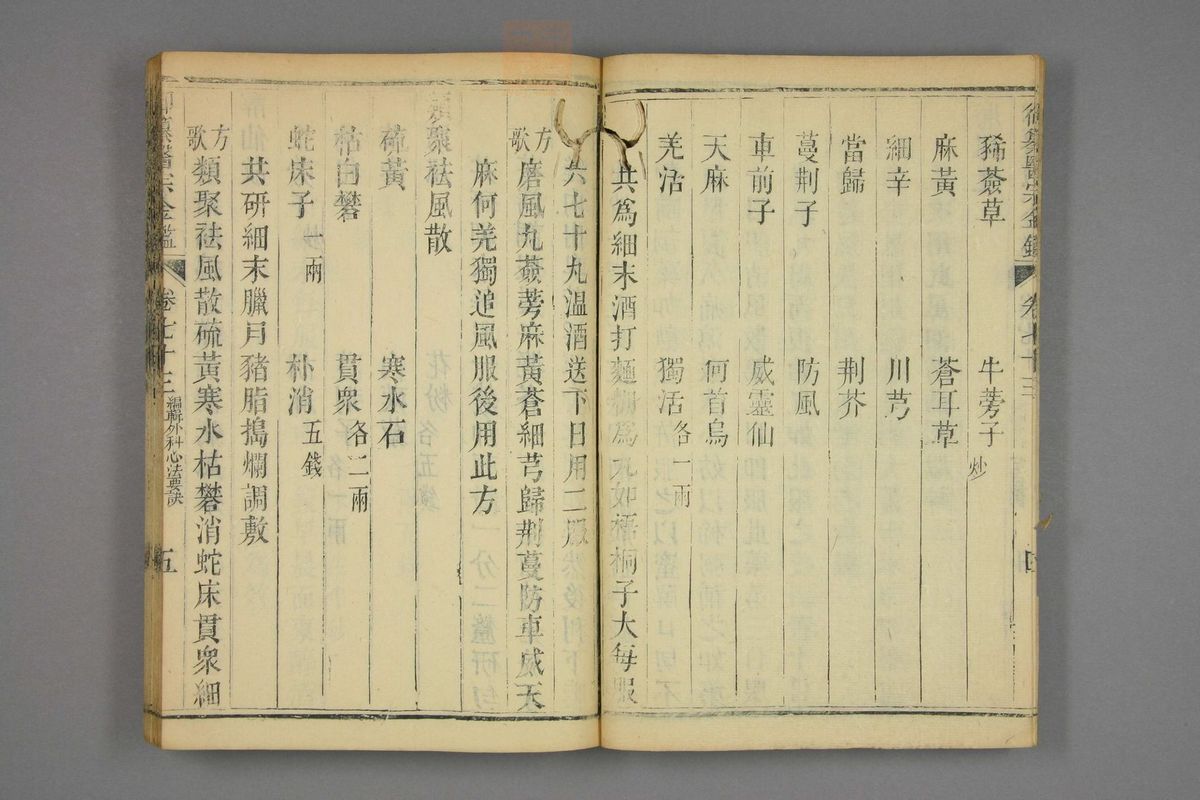 御纂醫宗金鑑 卷七十三
豨薟草 牛蒡子炒
麻黃 蒼耳草
細辛 川芎
當歸 荆芥
蔓荆子 防風
車前子 威靈仙
天麻 何首烏
羌活 獨活各一兩
共爲細末酒打麵糊爲丸如梧桐子大每服
六七十九温酒送下日用二服
方歌 磨風丸薟蒡麻黃蒼細芎歸荆蔓防車威天
麻何羌獨追風服後用此方
類聚祛風散
硫黃 寒水石
枯白礬 貫衆各二兩
蛇床子一兩 朴消五錢
共研細末臘月豬脂搗爛調敷
方歌 類聚祛風散硫黃寒水枯礬消蛇床貫衆細
御纂醫宗金鑑 卷七十三 編輯外科心法要訣 五